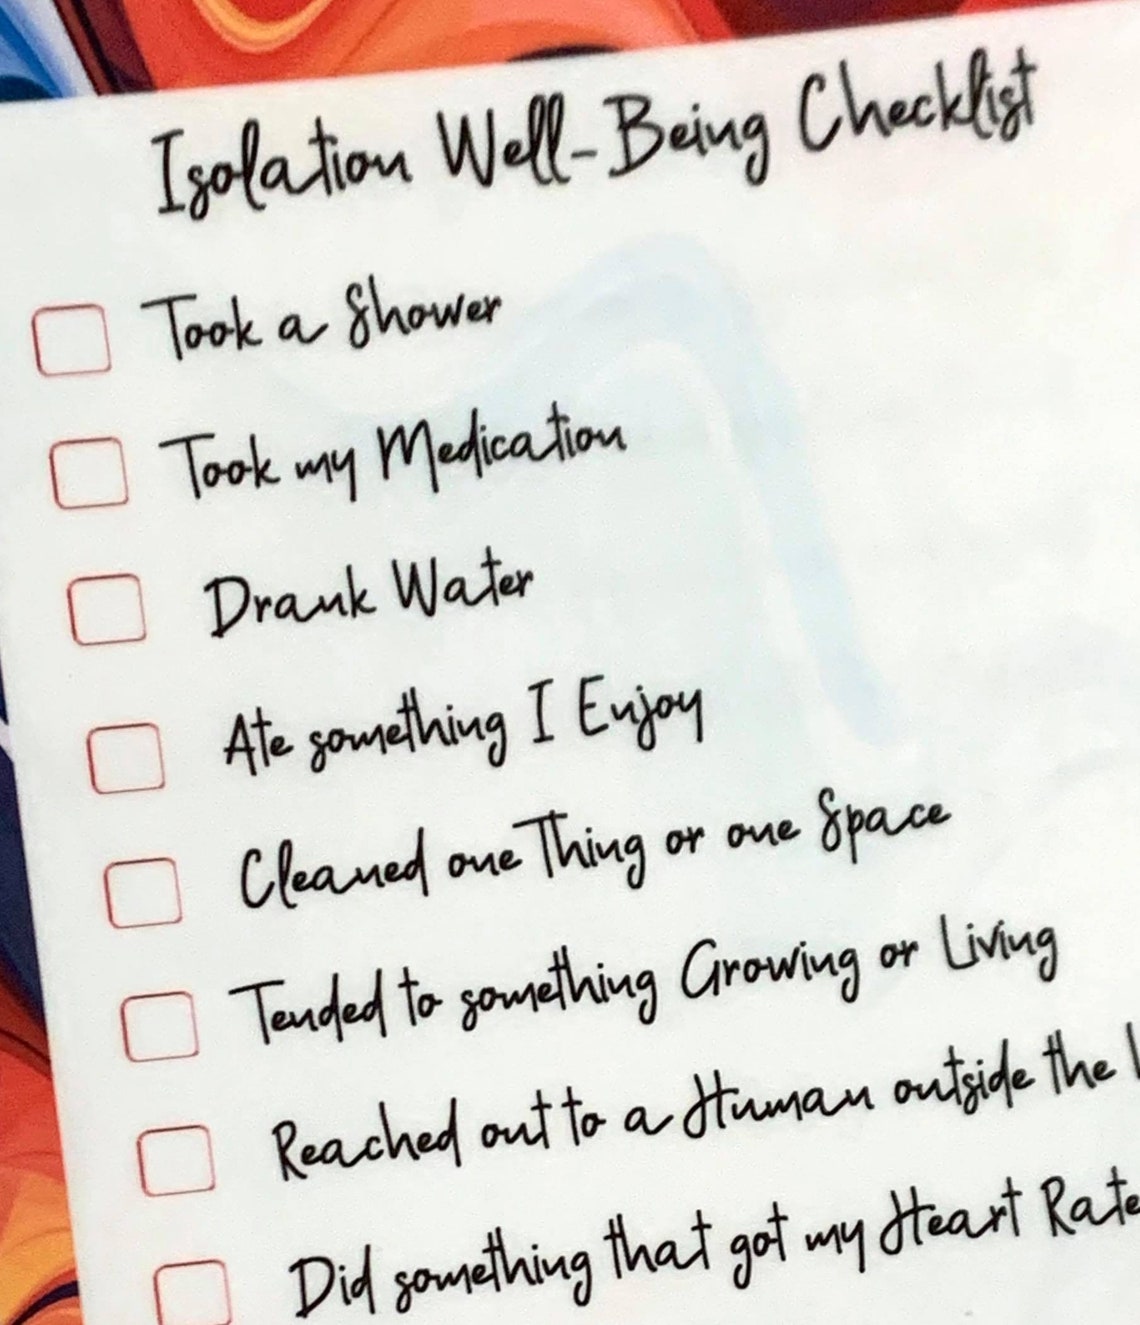 Isolation Well-Being Checklist
Took a Shower
Took my Medication
Drank Water
Ate something I Enjoy
Cleaned one Thing or one Space
Tended to something Growing or Living
Reached out to a Human outside the
Did something that got my Heart Rate